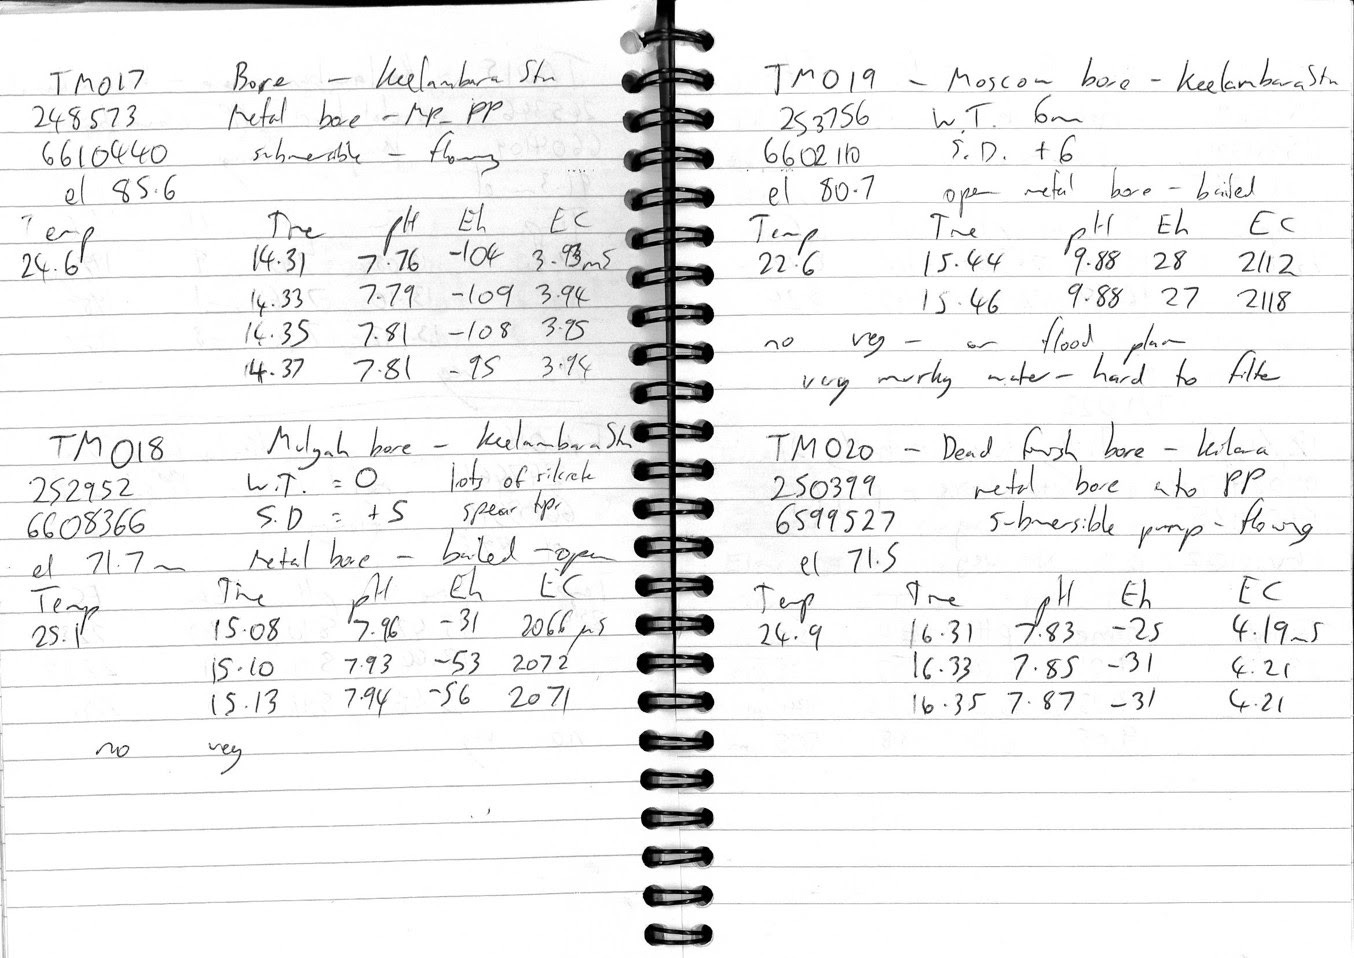 TM017 Bore - Keelambara Stn
248573 Metal bore - MP - PP
6610440 submersible - flowing
el 85.6
Temp Time pH Eh EC
24.6 14.31 7.76 -104 3.93mS
14.33 7.79 -109 3.94
14.35 7.81 -108 3.95
14.37 7.81 -95 3.94
TM018 Mulgah bore - Keelambara Stn
252952 W.T. = 0 lots of silcrete
6608366 S.D = +5 spear
el 71.7m Metal bore - bailed - open
Temp Time pH Eh EC
25.1 15.08 7.96 -31 2066 µS
15.10 7.93 -53 2072
15.13 7.94 -56 2071
no veg
TM019 - Moscow bore - Keelambara Stn
253756 W.T. 6m
6602110 S.D. +6
el 80.7 open metal bore - bailed
Temp Time pH Eh EC
22.6 15.44 9.88 28 2112
15.46 9.88 27 2118
no veg - on flood plain
very murky water - hard to filter
TM020 - Dead finish bore - Kilara
250399 metal bore into PP
6599527 submersible pump - flowing
el 71.5
Temp Time pH Eh EC
24.9 16.31 7.83 -25 4.19mS
16.33 7.85 -31 4.21
16.35 7.87 -31 4.21